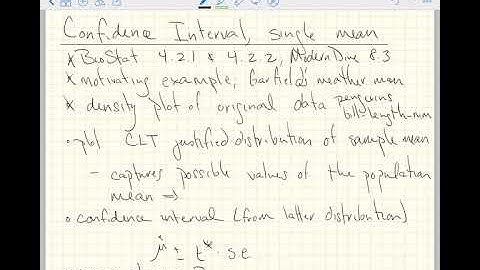 Confidence Interval, single mean
* BioStat 4.2.1 & 4.2.2, ModernDive 8.3
* motivating example, Garfield's weather man
* density plot of original data penguins
bill-length-mm
• plot CLT justified distribution of sample mean
- captures possible values of the population
mean ⇒
• confidence interval (from latter distribution)
μ̂ ± t* · s.e